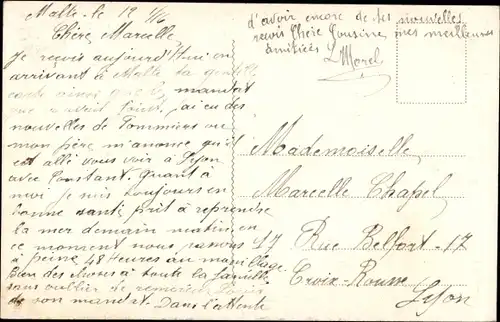 Malte. le 19 1/16
Chère Marcelle
Je reçois aujourd'hui en
arrivant à Malte ta gentille
carte ainsi que le mandat
que y était joint. ai eu des
nouvelles de Pommiers ou
mon père m'anonce qu'il
est allé vous voir à Lyon
avec Constant. Quant à
moi je suis toujours en
bonne santé prêt à reprendre
la mer demain matin, en
ce moment nous passons
à peine 48 Heures au mouillage
bien des choses à toute la famille
sans oublier de remercier
de son mandat. Dans l'attente
d'avoir encore de tes nouvelles
reçois Chère Cousine mes meilleures
amitiées
L Morel
Mademoiselle
Marcelle Chapel
17 Rue Belfort-17
Croix-Rousse
Lyon